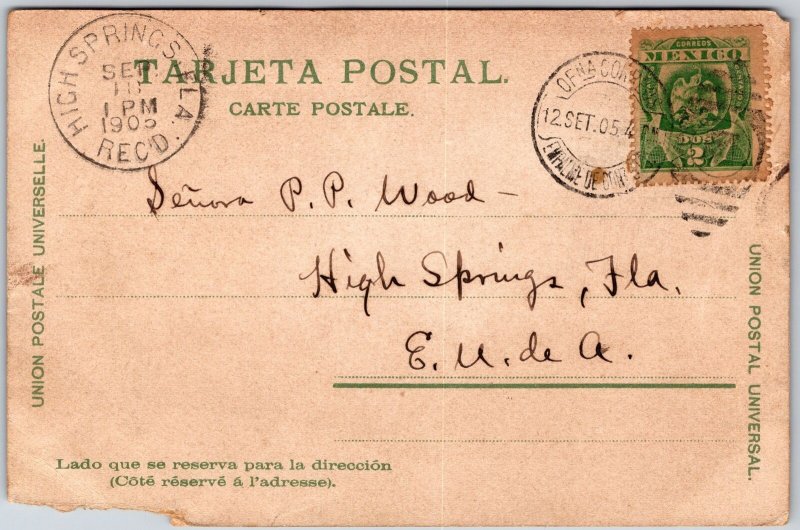 HIGH SPRINGS FLA.
SEP
1 PM
1905
REC'D.
TARJETA POSTAL.
CARTE POSTALE.
OFNA
12.SET.05.4
EMPALME DE
CORREOS
MEXICO
DOS
2
Señora P. P. Wood —
High Springs, Fla.
E. U. de A.
UNION POSTALE UNIVERSELLE.
UNION POSTAL UNIVERSAL.
Lado que se reserva para la dirección
(Côté réservé á l'adresse).